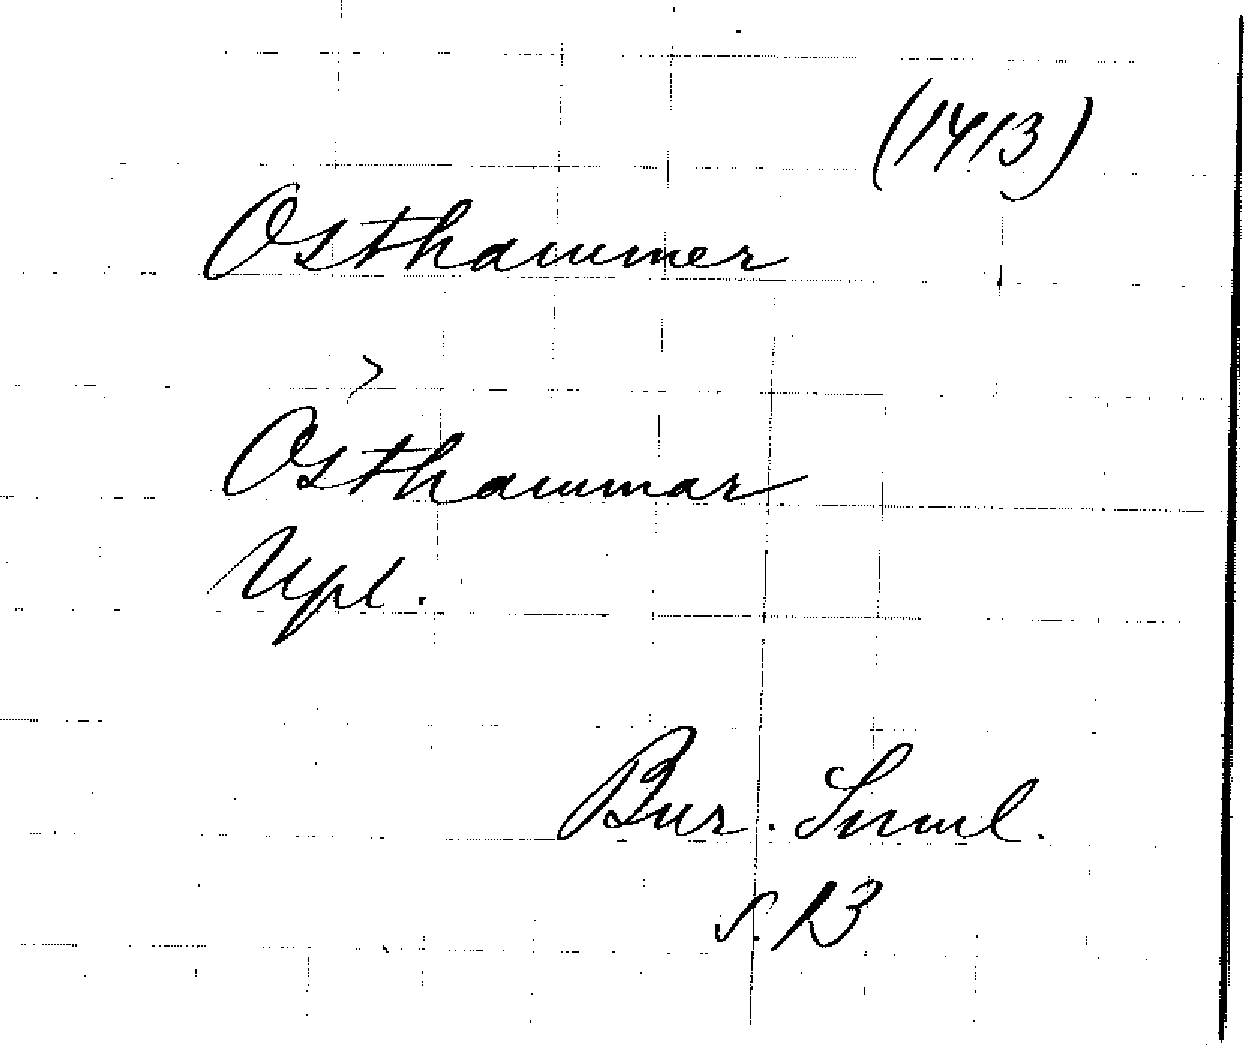 (1413)
Osthammer
>
Osthammar
Upl.
Bur. Suml.
s. 13